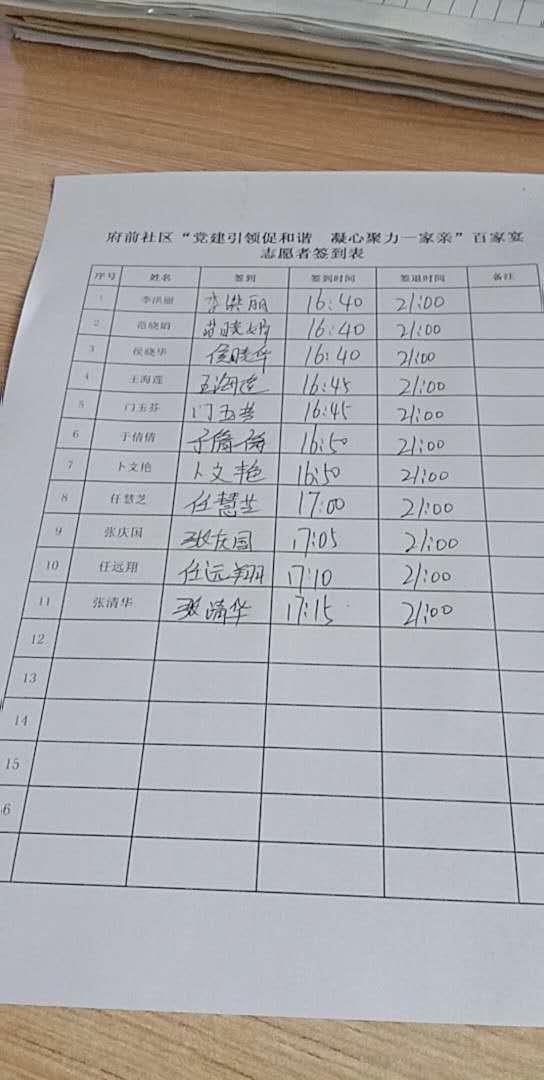 府前社区“党建引领促和谐 凝心聚力一家亲”百家宴
志愿者签到表
序号 姓名 签到 签到时间 签退时间 备注
1 李洪丽 李洪丽 16:40 21:00
2 范晓娟 范晓娟 16:40 21:00
3 侯晓华 侯晓华 16:40 21:00
4 王海莲 王海莲 16:45 21:00
5 门玉芬 门玉芬 16:45 21:00
6 于倩倩 于倩倩 16:50 21:00
7 卜文艳 卜文艳 16:50 21:00
8 任慧芝 任慧芝 17:00 21:00
9 张庆国 张庆国 17:05 21:00
10 任远翔 任远翔 17:10 21:00
11 张清华 张清华 17:15 21:00
12
13
14
15
6